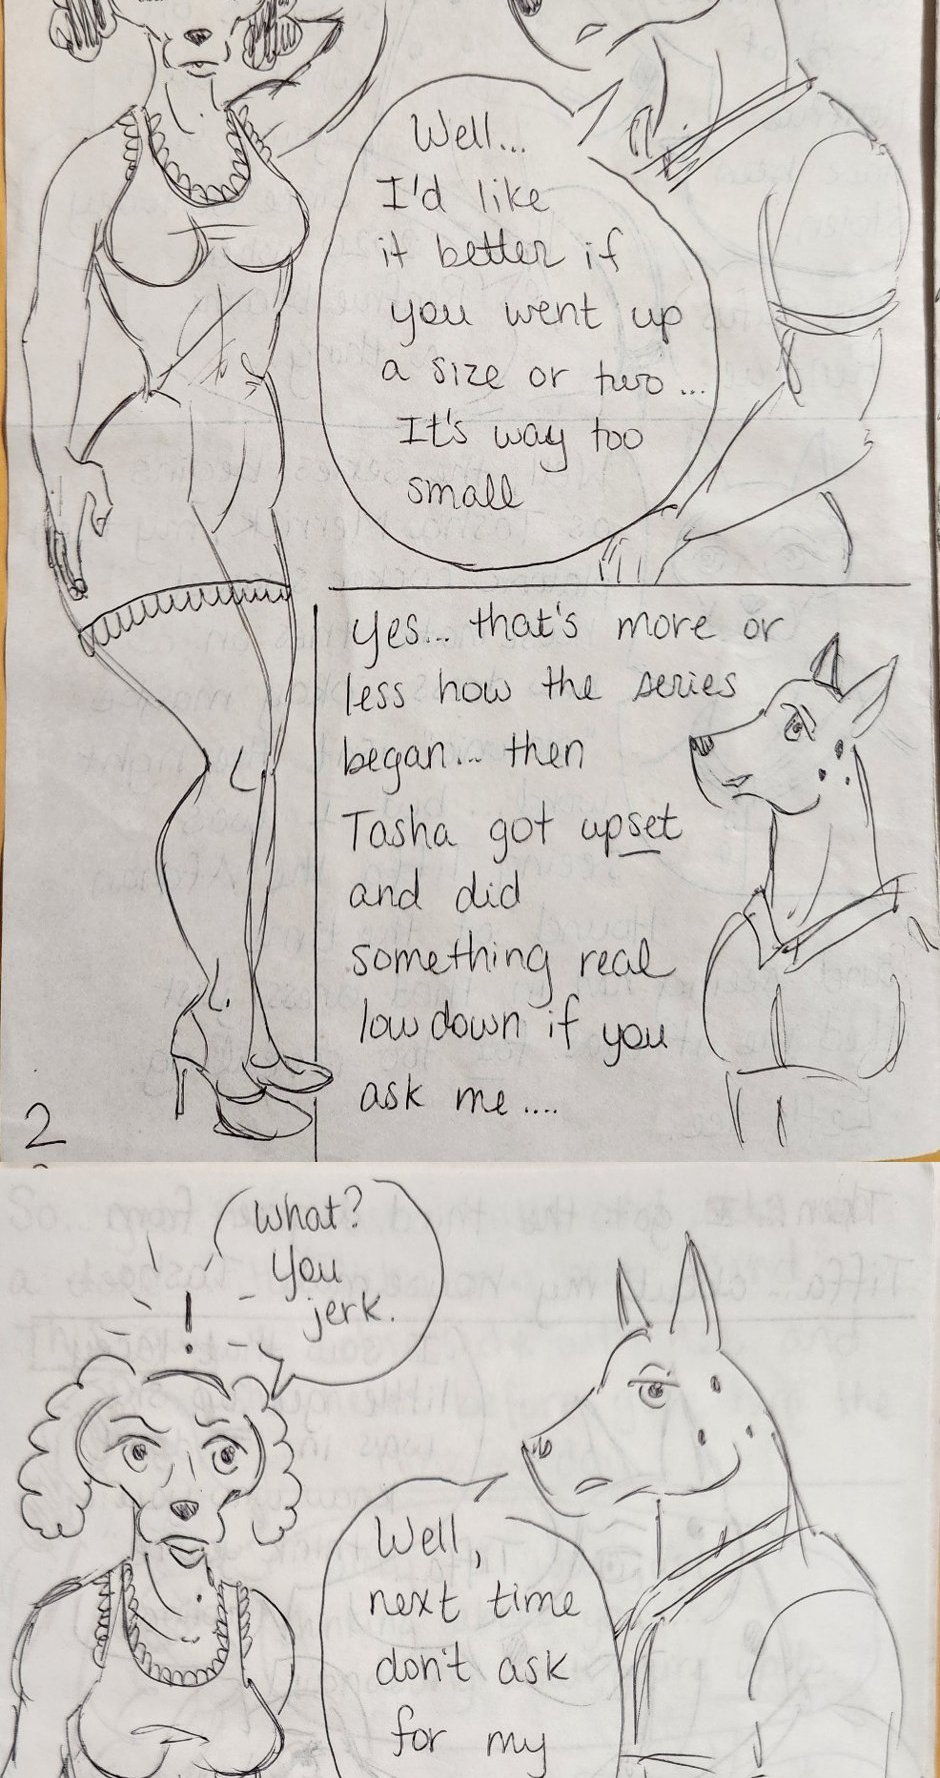 Well...
I'd like
it better if
you went up
a size or two...
It's way too
small
yes... that's more or
less how the series
began... then
Tasha got upset
and did
something real
lowdown if you
ask me....
2
!
What?
You
jerk.
Well,
next time
don't ask
for my